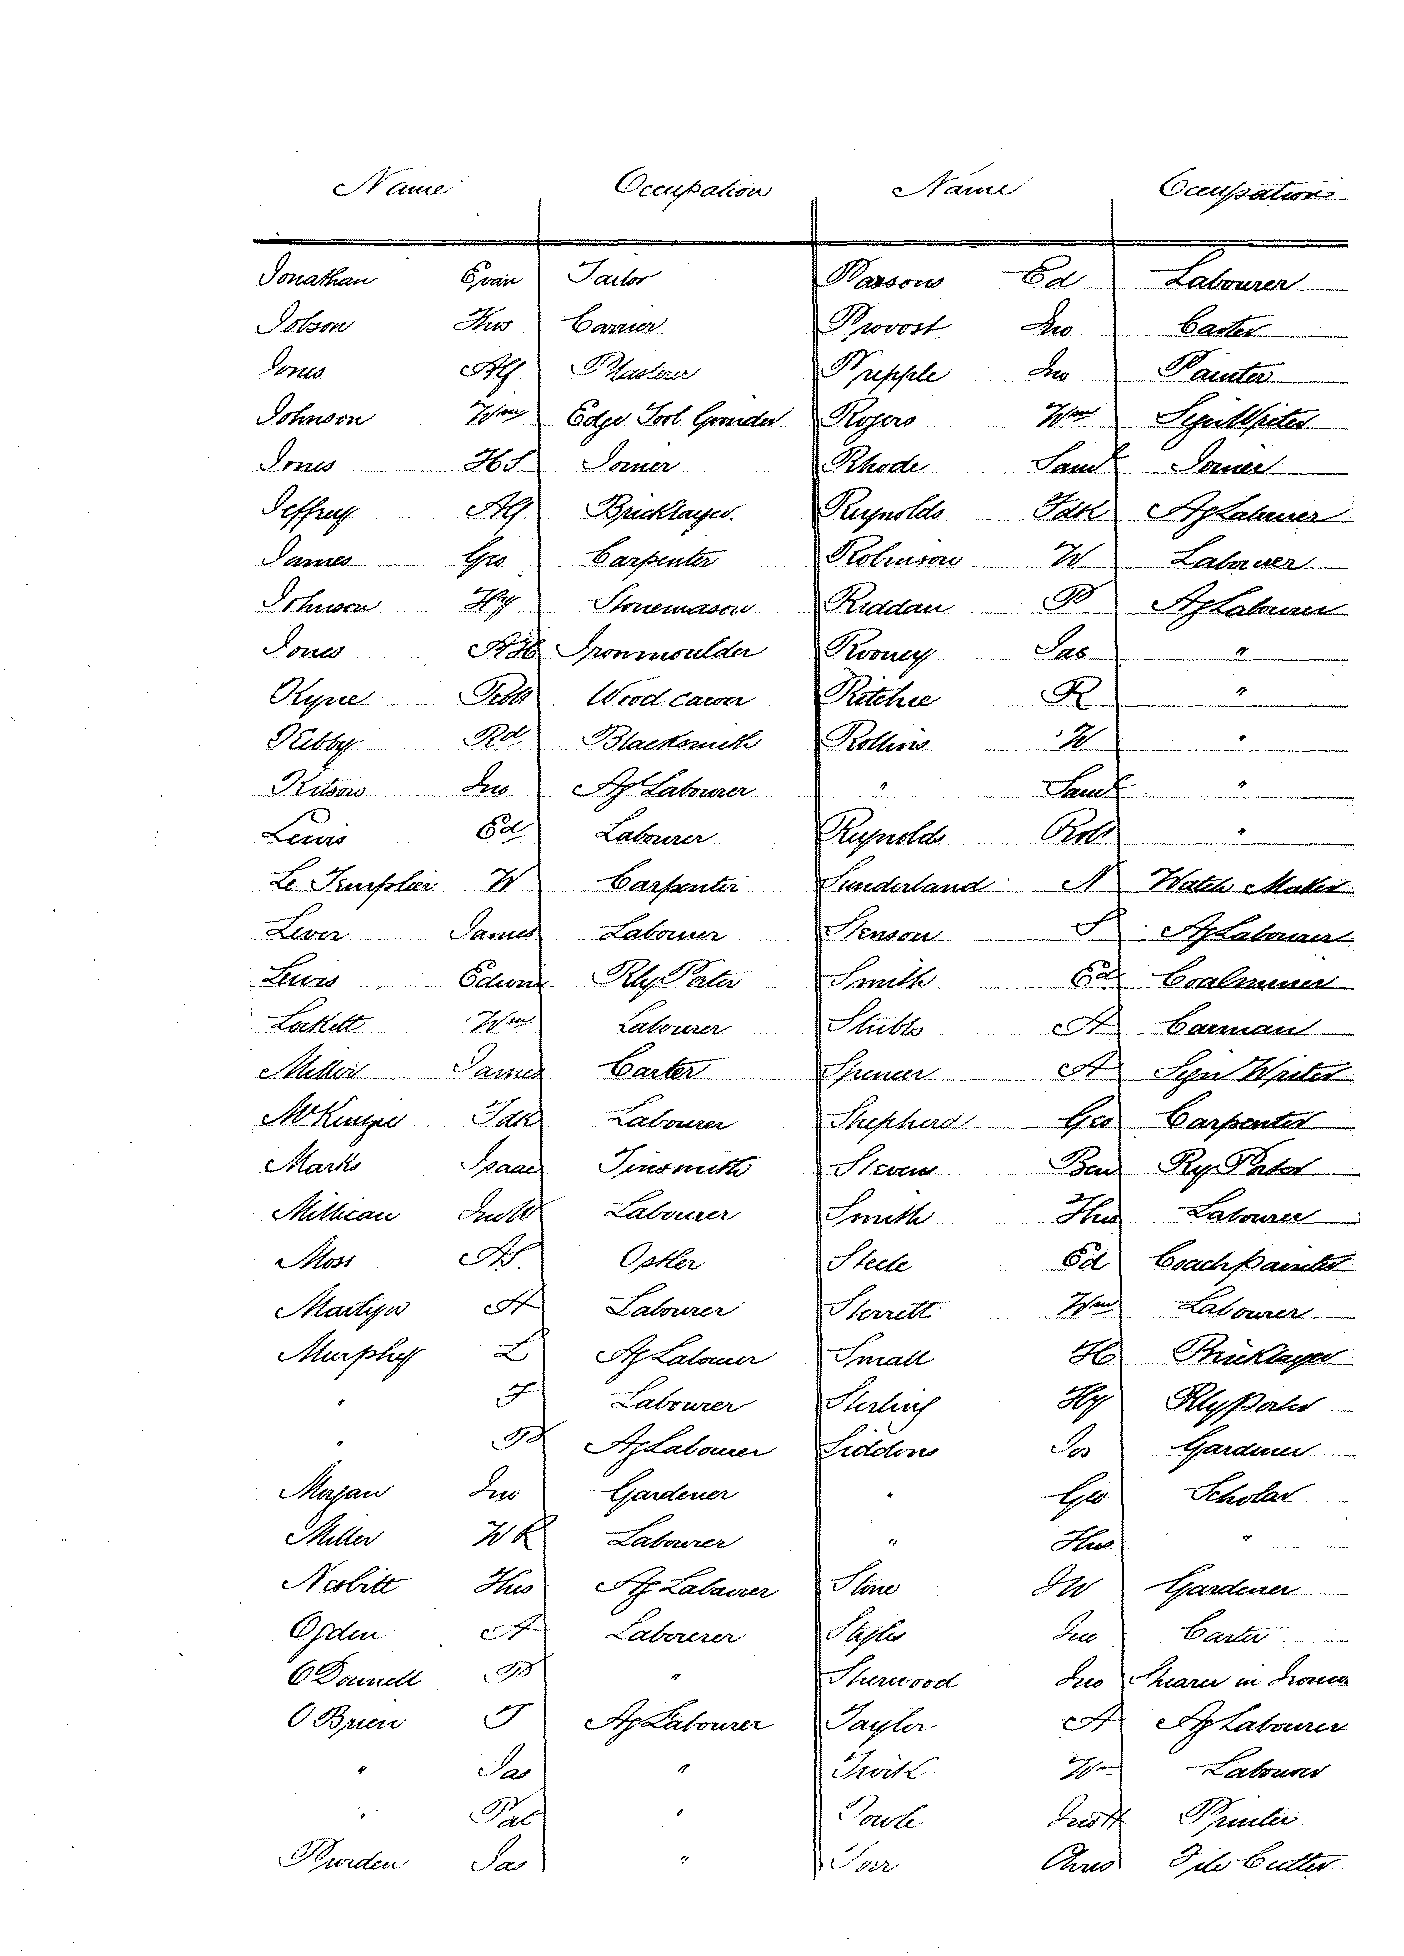 Name Occupation Name Occupation
Jonathan Evan Tailor Parsons Ed Labourer
Jobson Thos Carrier Provost Jno Carter
Jones Alf Plasterer Prepple Jno Painter
Johnson Wm Edge Tool Grinder Rogers Wm Sign Writer
Jones H S Joiner Rhode Saml Joiner
Jeffrey Alf Bricklayer Reynolds Fdk Ag Labourer
James Geo Carpenter Robinson W Labourer
Johnson Hy Stonemason Riddan P Ag Labourer
Jones A H Ironmoulder Rooney Jas "
Kyne Robt Wood carver Ritchie R "
Kibby Rd Blacksmith Rollins W "
Kitson Jno Ag Labourer " Saml "
Lewis Ed Labourer Reynolds Robt "
Le Templier W Carpenter Sunderland N Watch Maker
Lever James Labourer Stenson S Ag Labourer
Lewis Edwin Rly Porter Smith Ed Coalminer
Lockett Wm Labourer Stubbs A Carman
Miller James Carter Spencer A Sign Writer
McKenzie Fdk Labourer Shepherd Geo Carpenter
Marks Isaac Tinsmith Stevens Ben Ry Porter
Millican Jno W Labourer Smith Thos Labourer
Moss A S Ostler Steele Ed Coach painter
Martyn A Labourer Sterrett Wm Labourer
Murphy L Ag Labourer Small H Bricklayer
" F Labourer Sterling Hy Rly Porter
" P Ag Labourer Siddons Jos Gardener
Magan Jno Gardener " Geo Scholar
Miller W R Labourer " Thos "
Nesbitt Thos Ag Labourer Stone J W Gardener
Ogden A Labourer Staples Jno Carter
O Donnell P " Sherwood Jno Shearer in
O Brien T Ag Labourer Taylor A Ag Labourer
" Jas " Wm Labourer
" Pat " Towle Jno H Printer
Purden Jas " Torr Chris File Cutter